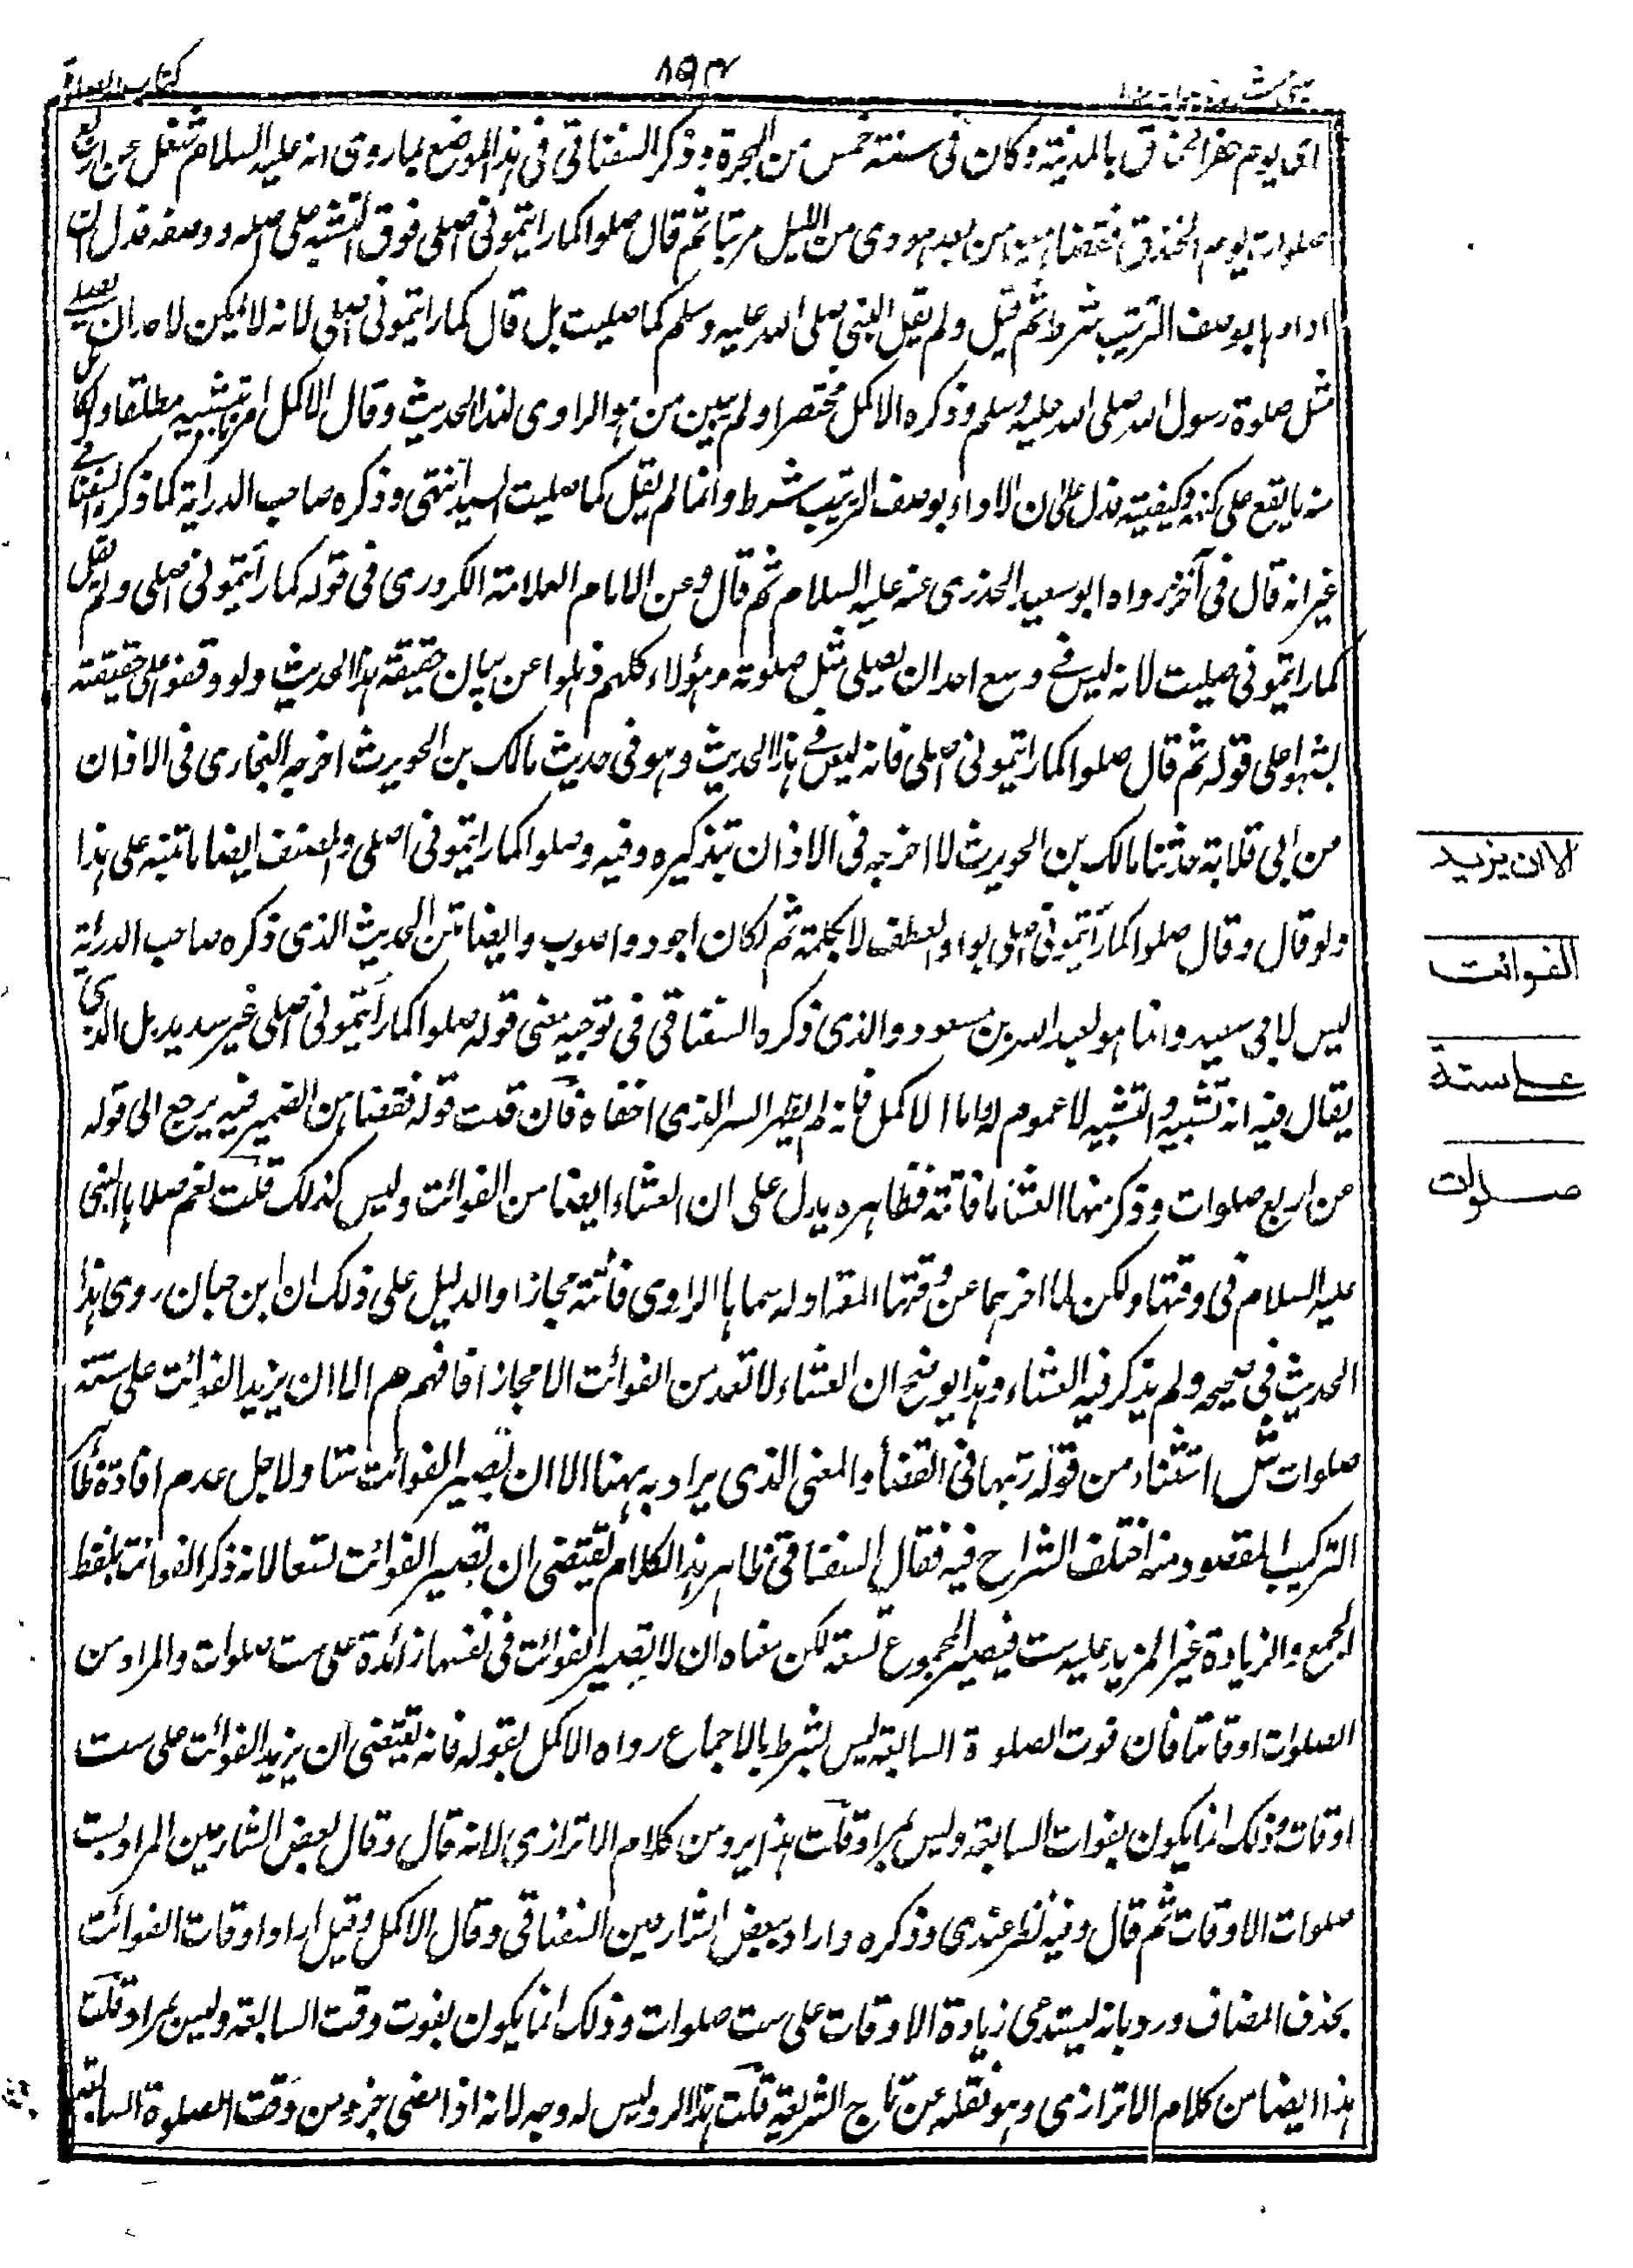 كتاب الصلوة
٨٩٣
اى يوم حفر الخندق بالمدينة وكان فى سنة خمس من الهجرة وذكر السغناقى فى هذا الموضع بما روى انه عليه السلام شغل عن اربع
صلوات يوم الخندق فقضاهن من بعد هوى من الليل مرتبا ثم قال صلوا كما رايتمونى اصلى فوق التشبيه على اصله ووصفه فدل ان
اداءها بوصف الترتيب شرط ثم قيل ولم يقل النبى صلى الله عليه وسلم كما صليت بل قال كما رايتمونى اصلى لانه لا يمكن لاحد ان يصلى
مثل صلوة رسول الله صلى الله عليه وسلم وذكره الاكمل مختصرا ولم يبين من هو الراوى لهذا الحديث وقال الاكمل امر بتشبيه مطلقا وكل
منه ما يقع على كنهه وكيفيته فدل على ان الاداء بوصف الترتيب شرط وانما لم يقل كما صليت انتهى وذكره صاحب الدراية كما ذكره السغناقى
غير انه قال فى آخره رواه ابو سعيد الخدرى عنه عليه السلام ثم قال وعن الامام العلامة الكردرى فى قوله كما رأيتمونى اصلى ولم يقل
كما رايتمونى صليت لانه ليس فى وسع احد ان يصلى مثل صلوته وهؤلاء كلهم ذهلوا عن بيان حقيقة هذا الحديث ولو وقفوا على حقيقته
لنبهوا على قوله ثم قال صلوا كما رايتمونى اصلى فانه ليس فى هذا الحديث وهو فى حديث مالك بن الحويرث اخرجه البخارى فى الاذان
من ابى قلابة حدثنا مالك بن الحويرث لا اخرجه فى الاذان بتذكيره وفيه وصلوا كما رايتمونى اصلى والمصنف ايضا ما تنبه على هذا
ولو قال وقال صلوا كما رأيتمونى اصلى بواو العطف لا بكلمة ثم لكان اجود واصوب وايضا متن الحديث الذى ذكره صاحب الدراية
ليس لابى سعيد وانما هو لعبد الله بن مسعود والذى ذكره السغناقى فى توجيه معنى قوله صلوا كما رأيتمونى اصلى غير سديد بل الذى
يقال فيه انه تشبيه والتشبيه لا عموم له واما الاكمل فانه لم يظهر السر الذى اخفاه فان قلت قوله فقضاهن الضمير فيه يرجع الى قوله
من اربع صلوات وذكر منها العشاء فظاهره يدل على ان العشاء ايضا من الفوائت وليس كذلك قلت نعم صلاها النبى
عليه السلام فى وقتها ولكن لما اخرها عن وقتها المعتاد له سماها الراوى فائتة مجازا والدليل على ذلك ان ابن حبان روى هذا
الحديث فى صحيحه ولم يذكر فيه العشاء وهذا يوضح ان العشاء لا تعد من الفوائت الا مجازا فافهم هم الا ان يزيد الفوائت على ستة
صلوات ش استثناء من قوله رتبها فى القضاء والمعنى الذى يراد به ههنا الا ان تصير الفوائت ستا ولاجل عدم افادة ظاهر
التركيب المقصود منه اختلف الشراح فيه فقال السغناقى ظاهر هذا الكلام يقتضى ان تصير الفوائت تسعا لانه ذكر الفوائت بلفظ
الجمع والزيادة غير المزيد عليه ست فيصير المجموع تسعة لكن معناه ان لا تصير الفوائت فى نفسها زائدة على ست صلوات والمراد من
الصلوات اوقاتها فان فوت الصلوة السابعة ليس بشرط بالاجماع رواه الاكمل بقوله فانه يقتضى ان يزيد الفوائت على ست
اوقات وذلك انما يكون بفوات السابعة وليس بمراد قلت هذا يرد من كلام الاترازى لانه قال وقال بعض الشارحين المراد بست
صلوات الاوقات ثم قال وفيه نظر عندى وذكره واراد ببعض الشارحين السغناقى وقال الاكمل وقيل اراد اوقات الفوائت
بحذف المضاف ورد بانه يستدعى زيادة الاوقات على ست صلوات وذلك انما يكون بفوت وقت السابعة وليس بمراد قلت
هذا ايضا من كلام الاترازى وهو نقله عن تاج الشريعة قلت هذا الرد ليس له وجه لانه اذا مضى جزء من وقت الصلوة السابعة
الا ان يزيد
الفوائت
على ستة
صلوات